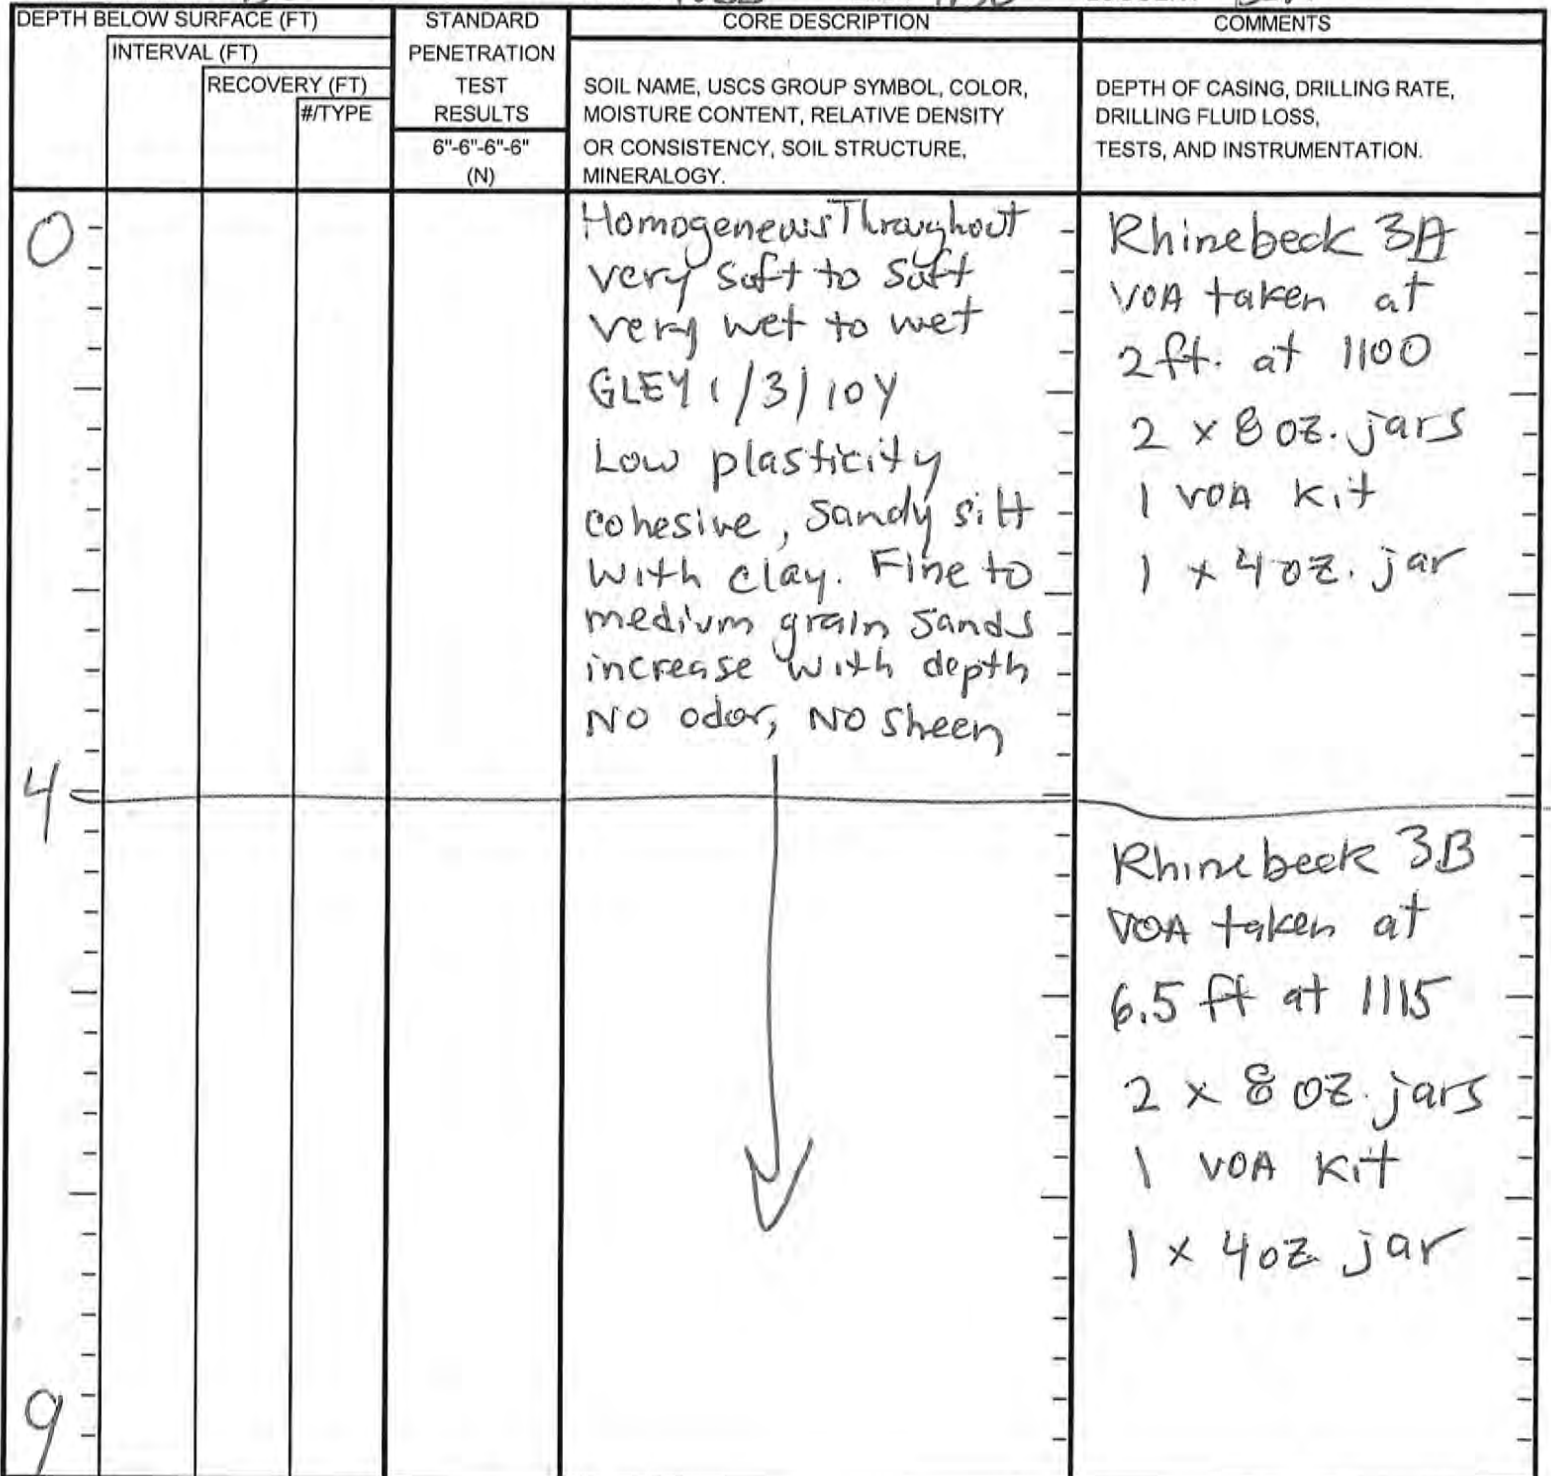 DEPTH BELOW SURFACE (FT)
INTERVAL (FT)
RECOVERY (FT)
#/TYPE
STANDARD
PENETRATION
TEST
RESULTS
6"-6"-6"-6"
(N)
CORE DESCRIPTION
SOIL NAME, USCS GROUP SYMBOL, COLOR,
MOISTURE CONTENT, RELATIVE DENSITY
OR CONSISTENCY, SOIL STRUCTURE,
MINERALOGY.
COMMENTS
DEPTH OF CASING, DRILLING RATE,
DRILLING FLUID LOSS,
TESTS, AND INSTRUMENTATION.
0
Homogeneous Throughout
very soft to soft
very wet to wet
GLEY 1/3/10Y
Low plasticity
cohesive, Sandy silt
with clay. Fine to
medium grain sands
increase with depth
NO odor, NO sheen
Rhinebeck 3A
VOA taken at
2 ft. at 1100
2 x 8 oz. jars
1 VOA Kit
1 x 4 oz. jar
4
Rhinebeck 3B
VOA taken at
6.5 ft at 1115
2 x 8 oz. jars
1 VOA Kit
1 x 4 oz jar
9